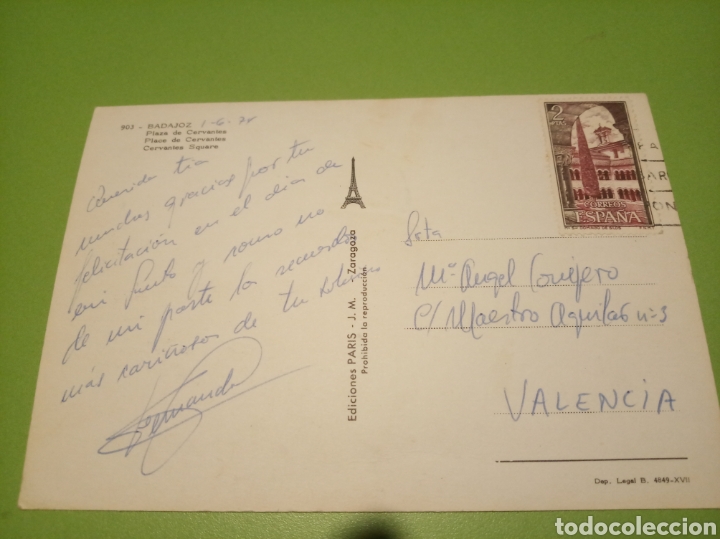 903 - BADAJOZ 1-6-74
Plaza de Cervantes
Place de Cervantes
Cervantes Square
Querida tía
muchas gracias por tu
felicitación en el día de
mi Santo y como no
de mi parte los recuerdos
más cariñosos de tu
Fernando
Ediciones PARIS - J. M. - Zaragoza
Prohibida la reproducción.
2
CORREOS
ESPAÑA
Srta
Mª Angel Conejero
C/ Maestro Aguilar n-3
VALENCIA
Dep. Legal B. 4849-XVII
todocoleccion